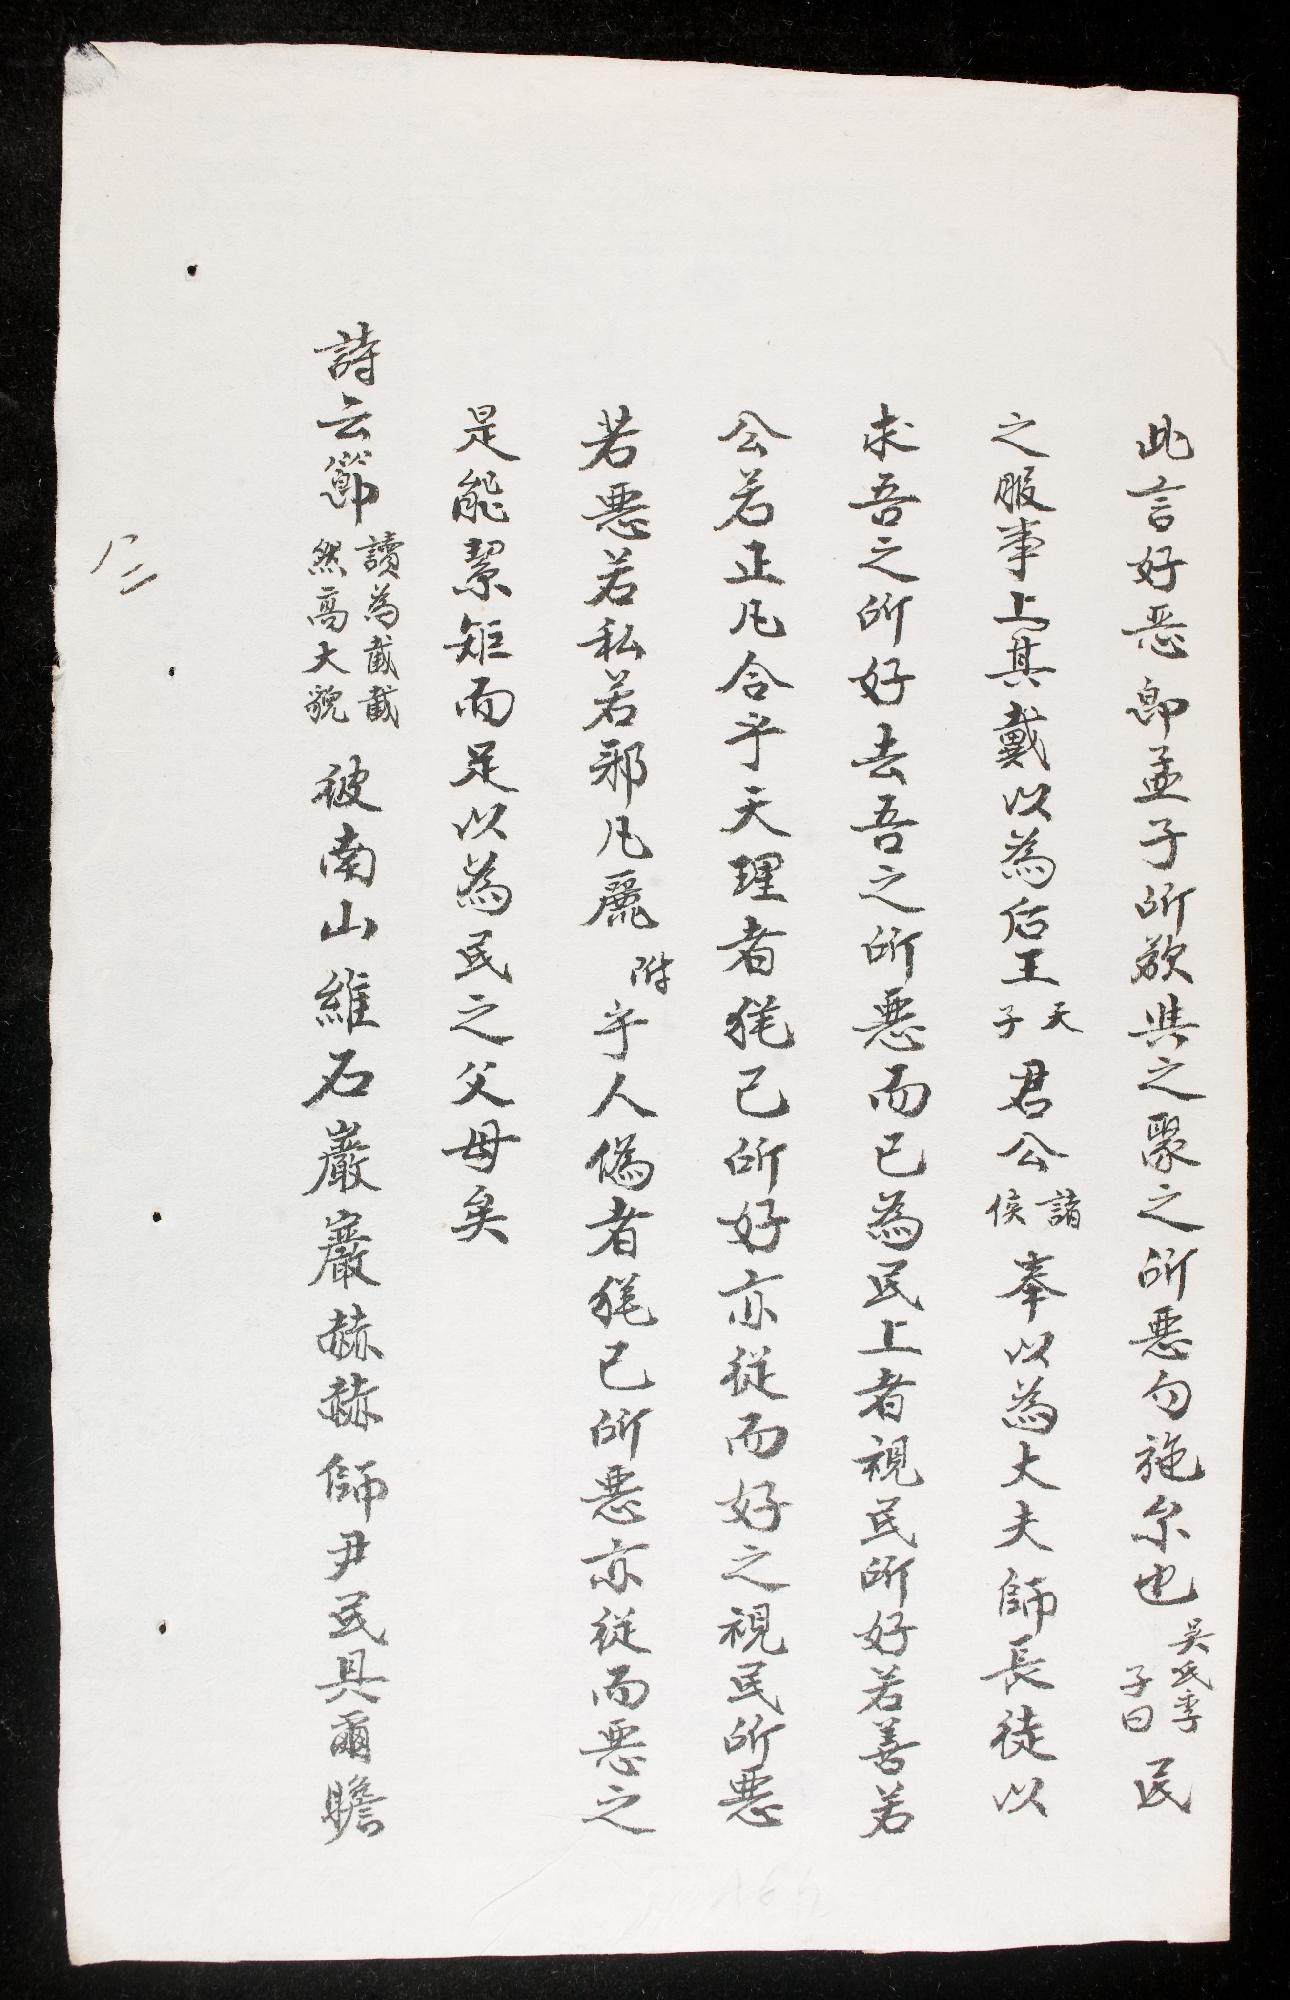 此言好恶即孟子所欲與之聚之所惡勿施尔也吳氏季子曰民
之服事上其戴以為后王天子君公諸侯奉以為大夫師長徒以
求吾之所好去吾之所惡而已為民上者視民所好若善若
公若正凡合乎天理者猶己所好亦從而好之視民所惡
若惡若私若邪凡麗附乎人偽者猶己所惡亦從而惡之
是能絜矩而足以為民之父母矣
詩云節讀為截截然高大貌彼南山維石巖巖赫赫師尹民具爾瞻